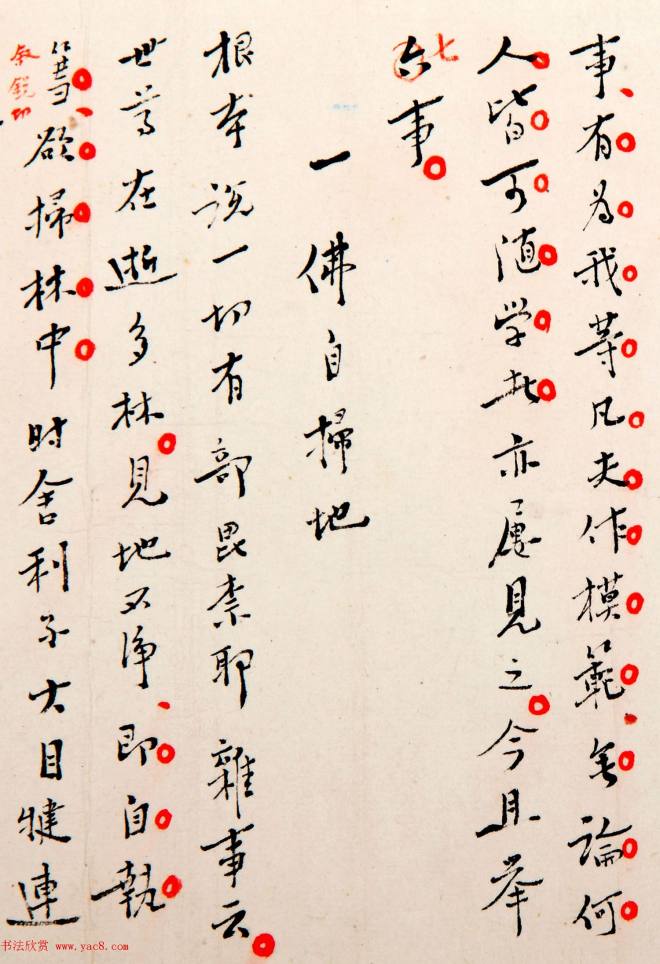 事、有為我等凡夫作模範、無論何
人皆可随学者亦屢見之。今且举
七事。
一 佛自掃地
根本説一切有部毘柰耶雜事云。
世尊在逝多林。見地不净、即自執
篲、欲掃林中时舍利子大目犍連
銳切
书法欣赏 www.yac8.com